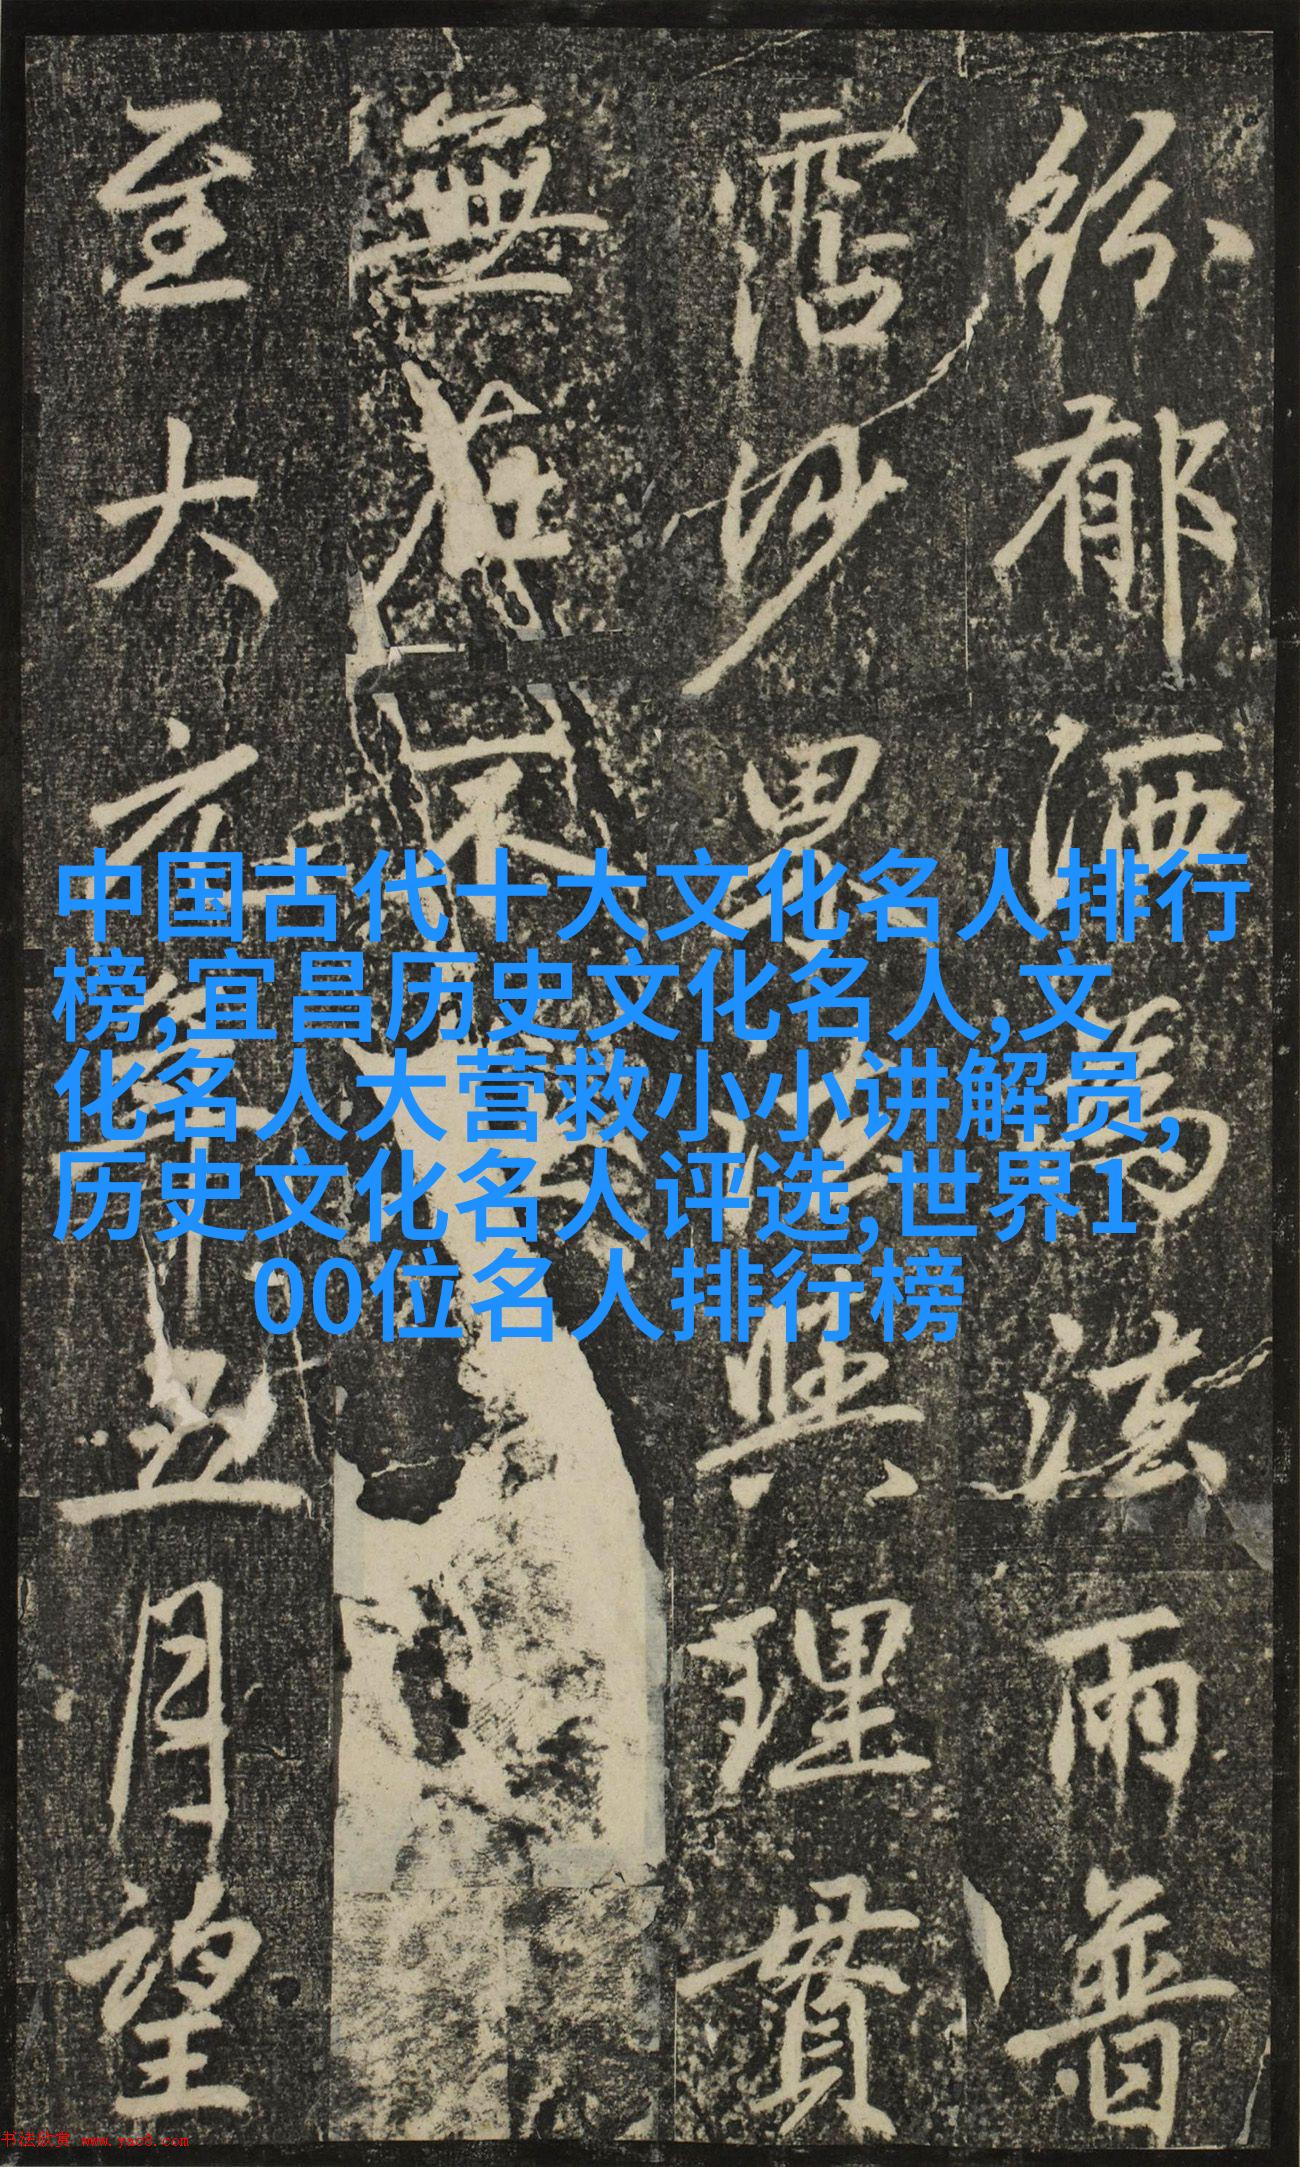 紛郁洒為法雨普
霑妙果法興理貫
無在不
至大元年五月望
中国古代十大文化名人排行
榜,宜昌历史文化名人,文
化名人大营救小小讲解员,
历史文化名人评选,世界1
00位名人排行榜
书法欣赏 www.yac8.com